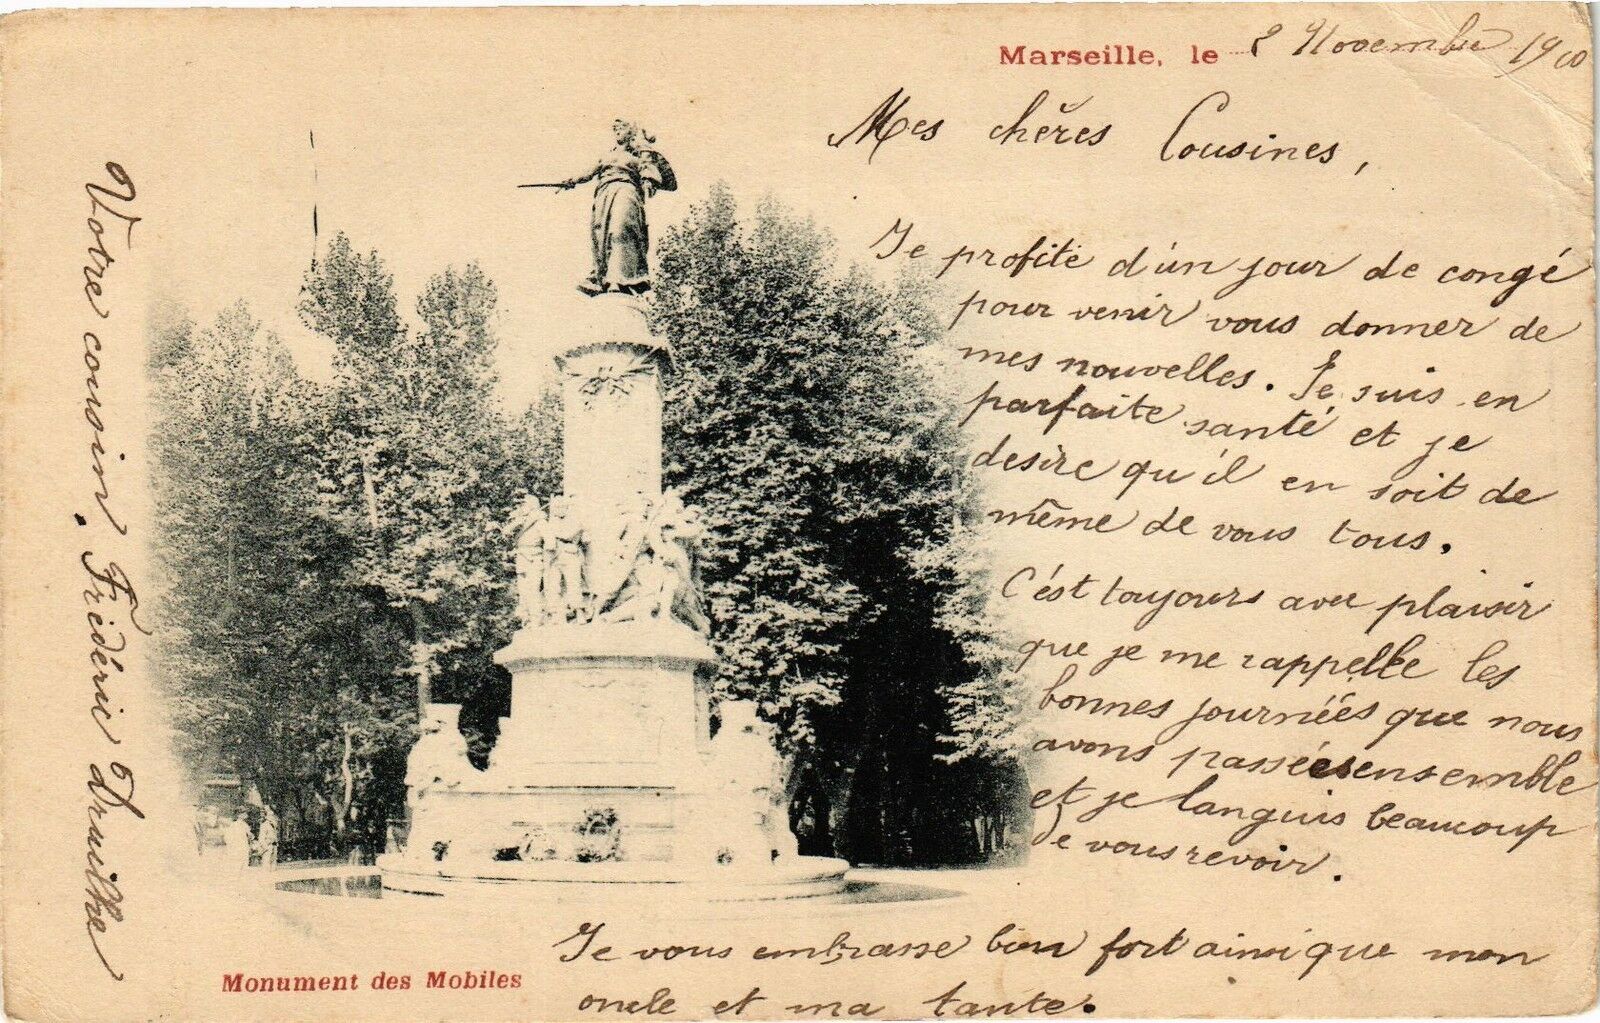 Marseille, le 2 Novembre 1900
Mes chères Cousines,
Je profite d'un jour de congé
pour venir vous donner de
mes nouvelles. Je suis en
parfaite santé et je
desire qu'il en soit de
même de vous tous.
C'est toujours avec plaisir
que je me rappelle les
bonnes journées que nous
avons passées ensemble
et je languis beaucoup
de vous revoir.
Je vous embrasse bien fort ainsi que mon
oncle et ma tante.
Votre cousin. Frédéric Druilhe
Monument des Mobiles